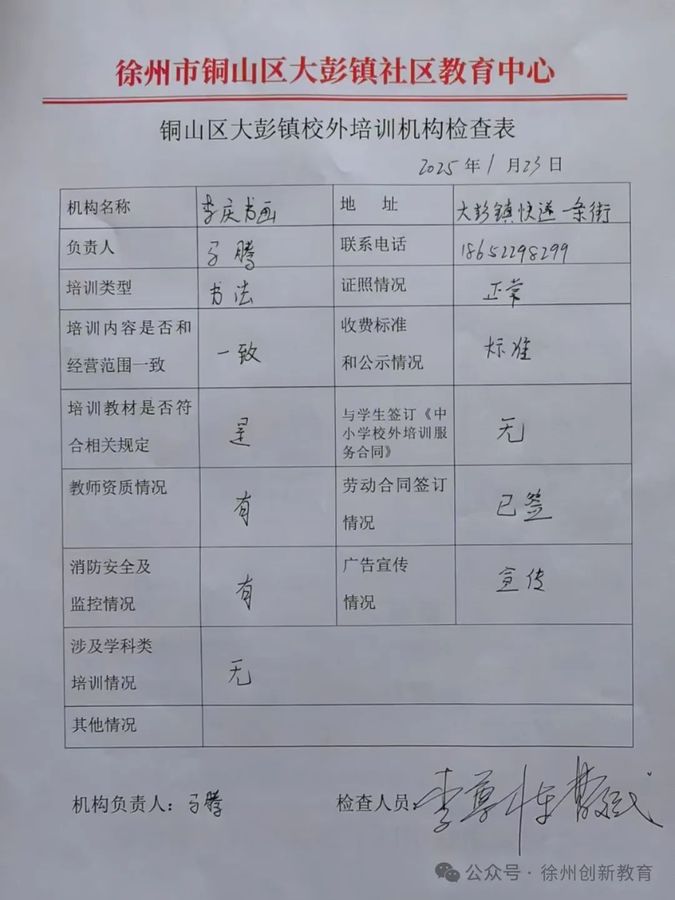 徐州市铜山区大彭镇社区教育中心
铜山区大彭镇校外培训机构检查表
2025 年 1 月 23 日
机构名称 李庆书画 地 址 大彭镇快递一条街
负责人 马腾 联系电话 18652298299
培训类型 书法 证照情况 正常
培训内容是否和
经营范围一致 一致
收费标准
和公示情况 标准
培训教材是否符
合相关规定 是
与学生签订《中
小学校外培训服
务合同》 无
教师资质情况 有
劳动合同签订
情况 已签
消防安全及
监控情况 有
广告宣传
情况 宣传
涉及学科类
培训情况 无
其他情况
机构负责人：马腾 检查人员：李
公众号 · 徐州创新教育